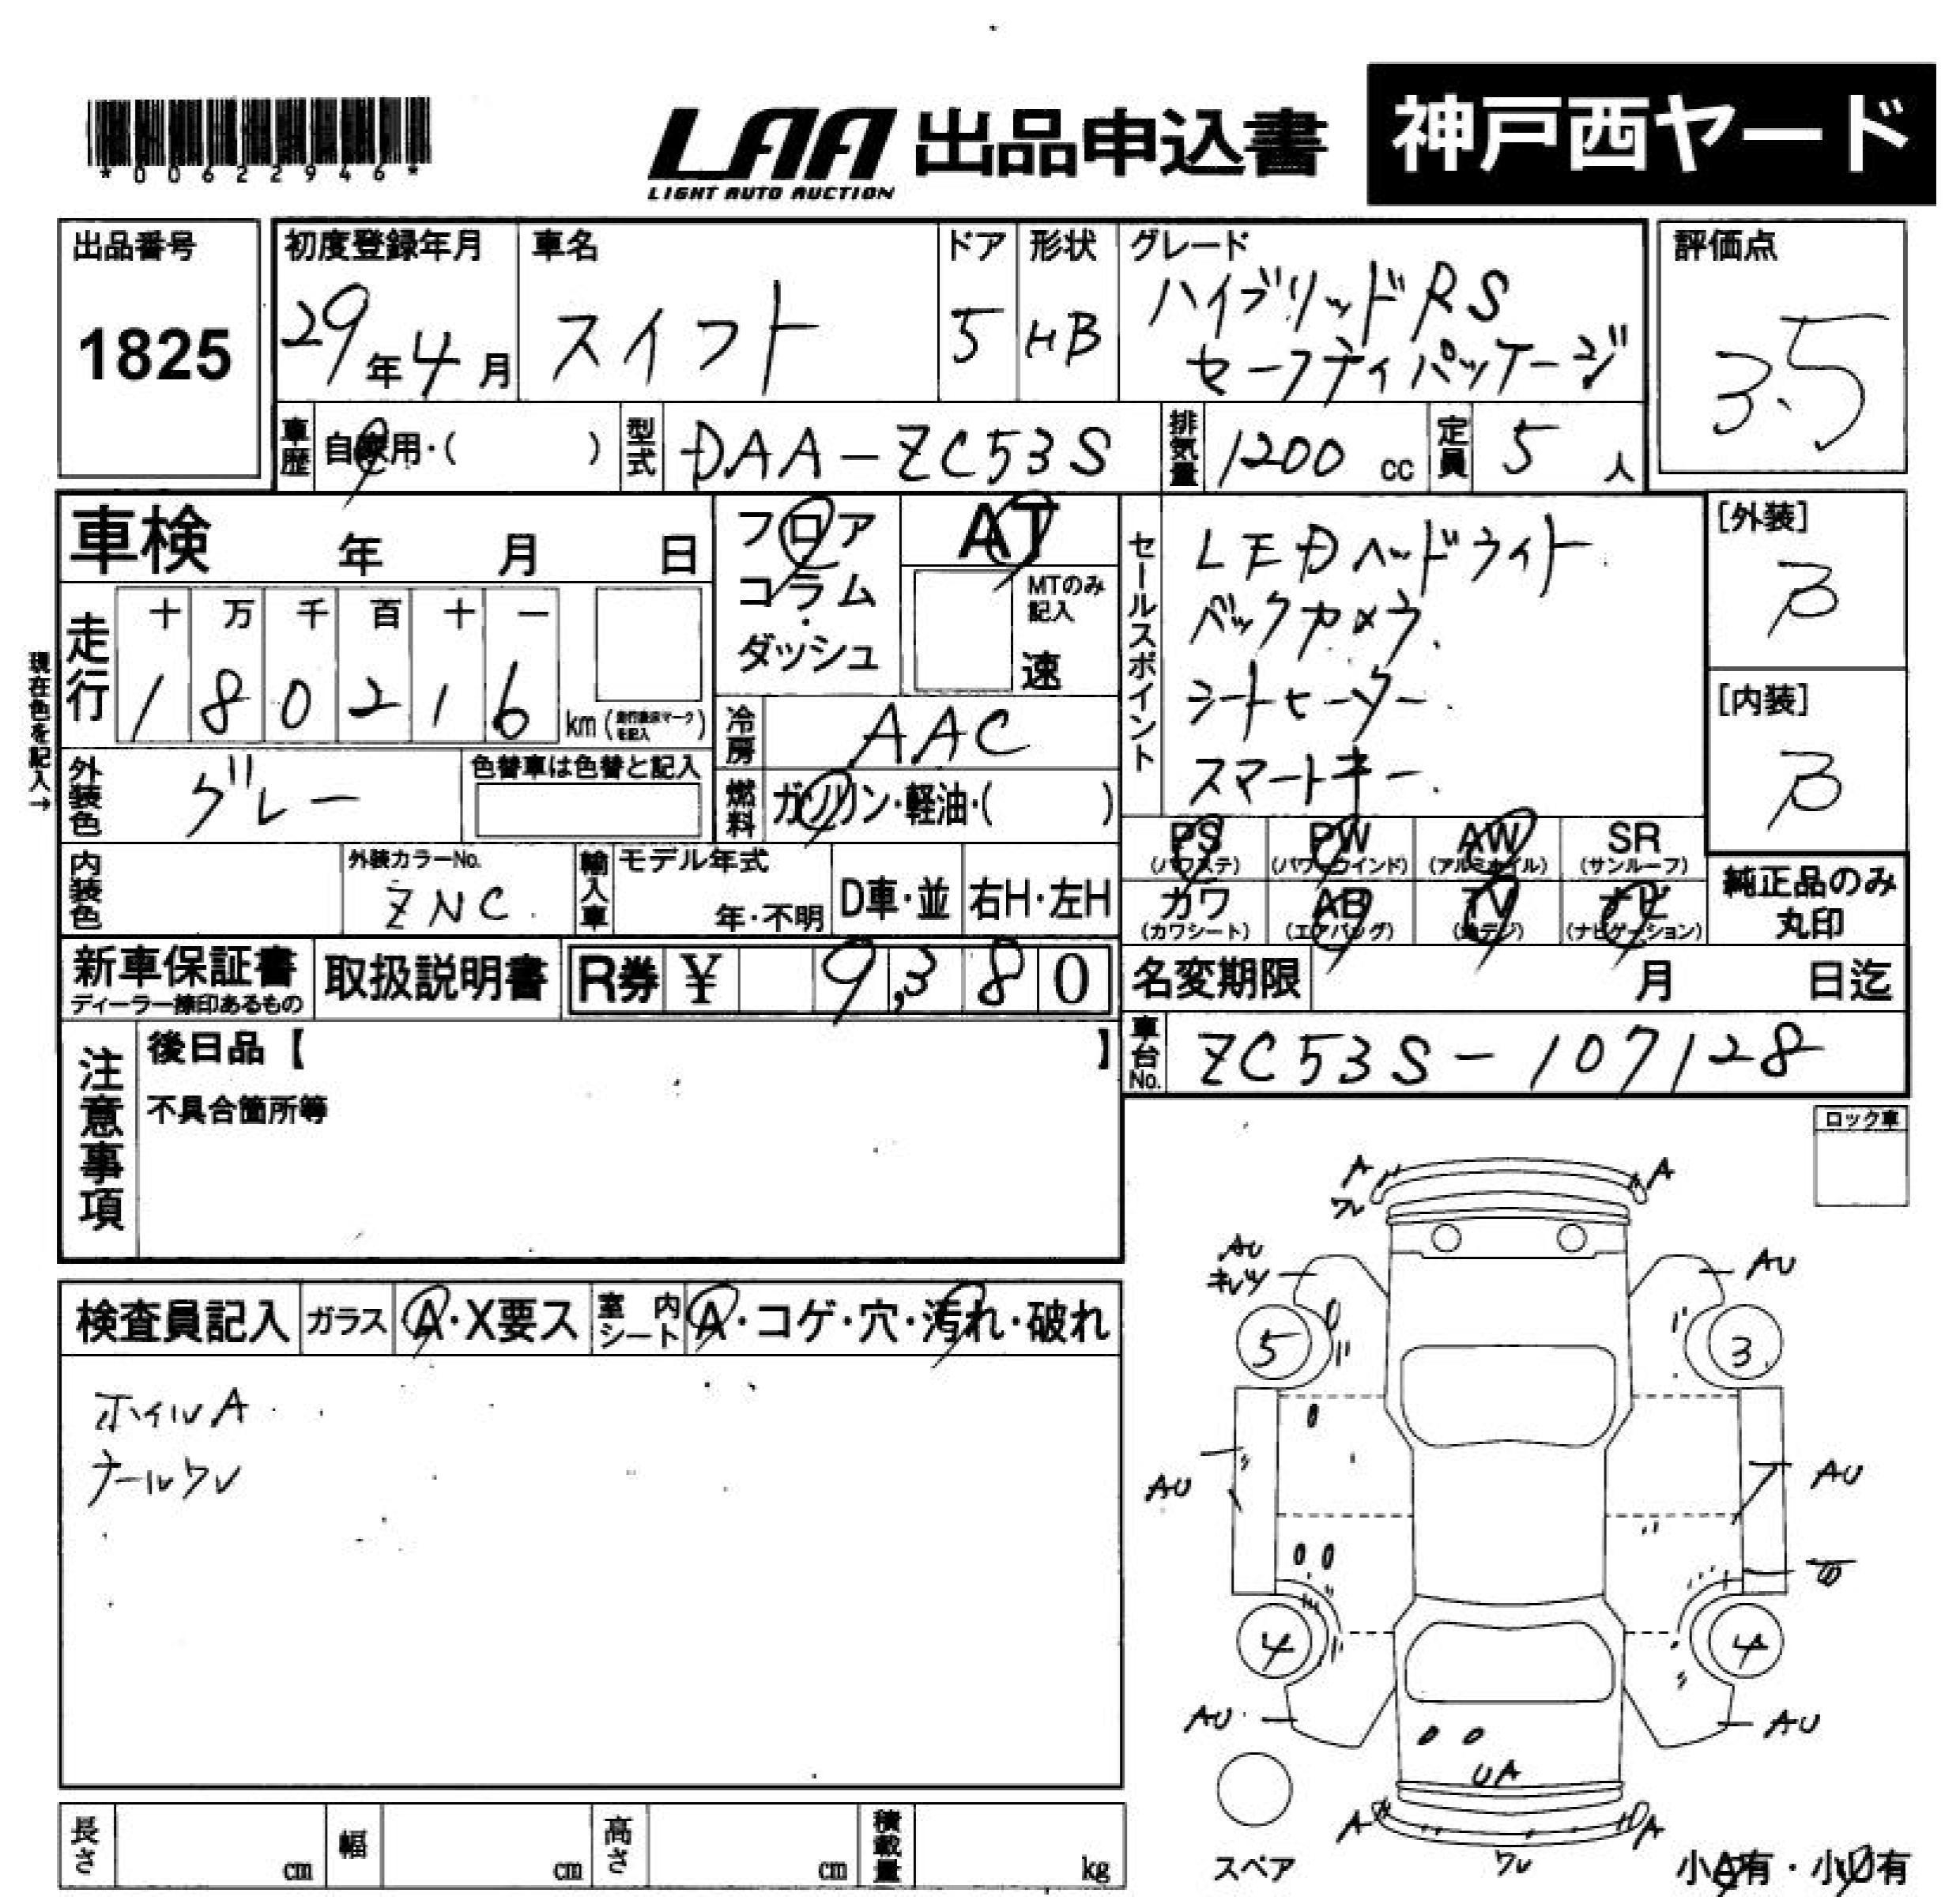 *00622946*
LAA 出品申込書
LIGHT AUTO AUCTION
神戸西ヤード
出品番号
1825
初度登録年月
29年4月
車名
スイフト
ドア
5
形状
HB
グレード
ハイブリッドRS
セーフティパッケージ
評価点
3.5
車歴
自家用・( )
型式
DAA-ZC53S
排気量
1200 cc
定員
5 人
車検 年 月 日
フロア
コラム
・
ダッシュ
AT
MTのみ
記入
速
セールスポイント
LEDヘッドライト.
バックカメラ.
シートヒーター
スマートキー.
[外装]
B
[内装]
B
現在色を記入→
走行
十 万 千 百 十 一
1 8 0 2 1 6 km
冷房
AAC
外装色
グレー
色替車は色替と記入
燃料
ガソリン・軽油・( )
PS
(パワステ)
PW
(パワーウインド)
AW
(アルミホイル)
SR
(サンルーフ)
カワ
(カワシート)
AB
(エアバッグ)
TV
(地デジ)
ナビ
(ナビゲーション)
純正品のみ
丸印
内装色
外装カラーNo.
ZNC.
輸入車
モデル年式
年・不明
D車・並
右H・左H
新車保証書
ディーラー捺印あるもの
取扱説明書
R券 ¥ 9,380
名変期限 月 日迄
車台No.
ZC53S-107128
注意事項
後日品【 】
不具合箇所等
ロック車
検査員記入
ガラス
A・X要ス
室内シート
A・コゲ・穴・汚れ・破れ
ホイルA
ナールワレ
A
A
ワレ
AU
キレツ
AU
5
3
AU
AU
4
4
AU
AU
UA
A
A
ワレ
スペア
小A有・小U有
長さ cm
幅 cm
高さ cm
積載量 kg